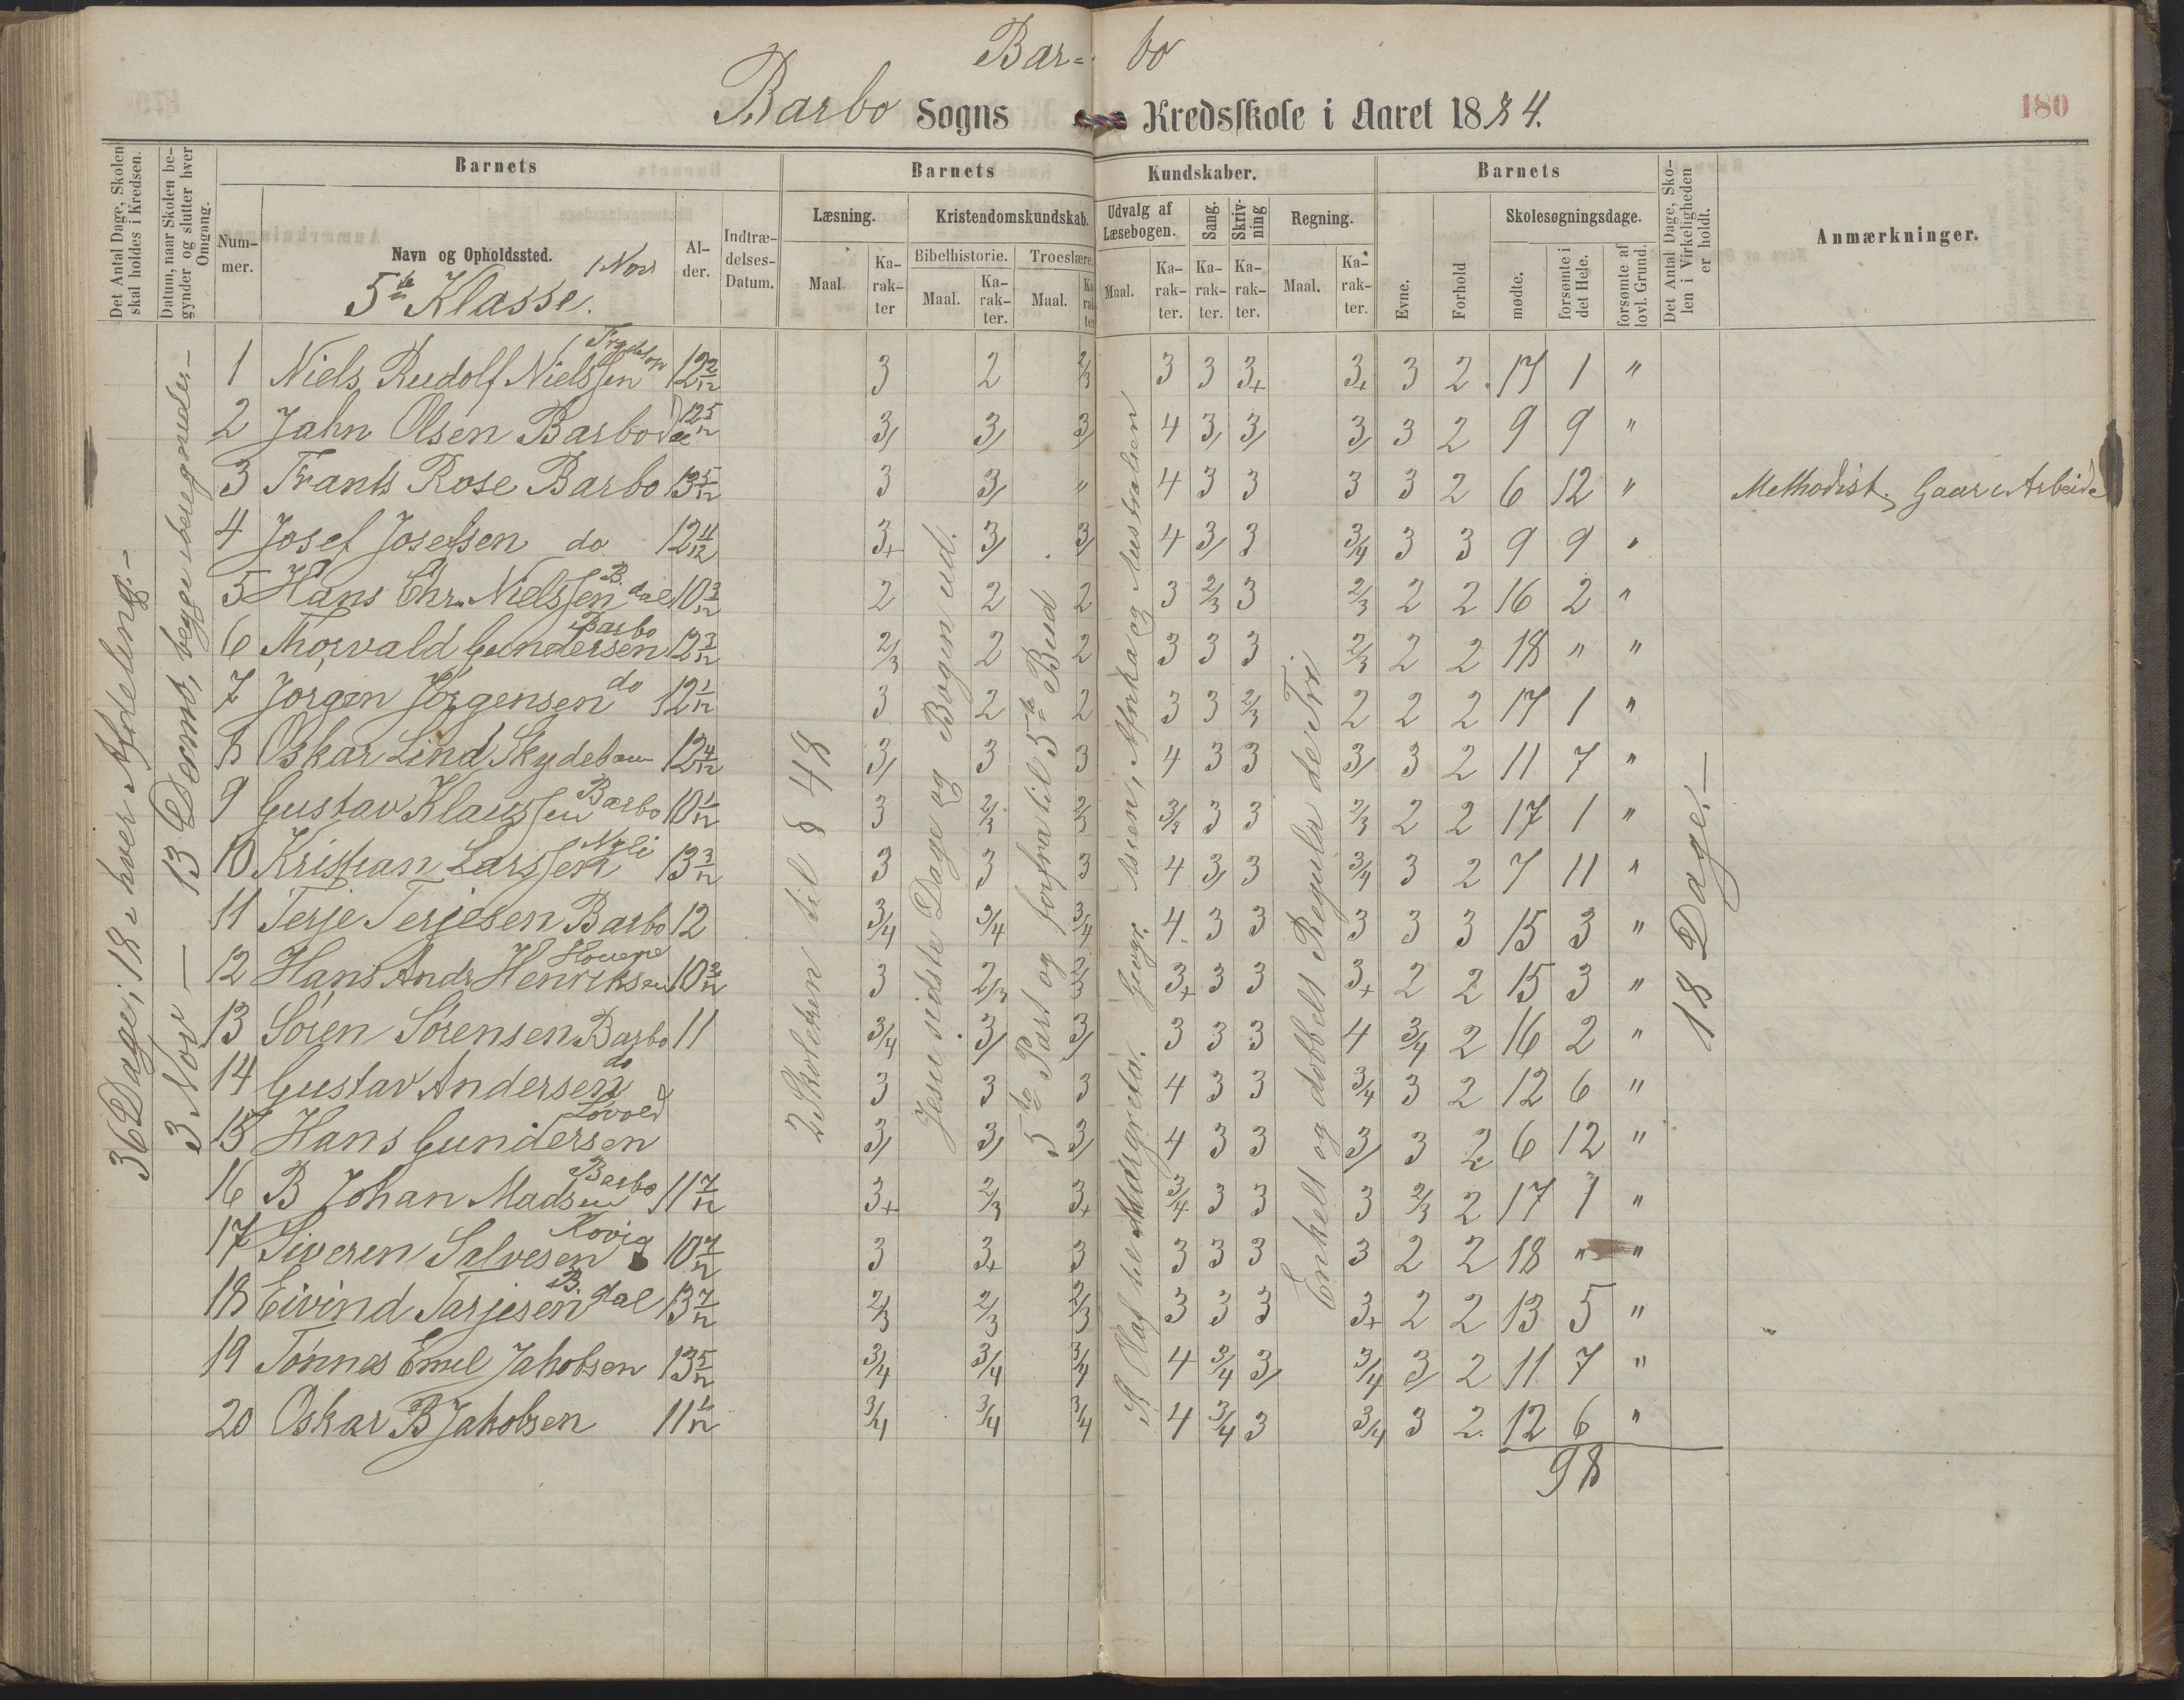 Bar= bo
Barbo Sogns Kredsskole i Aaret 1884.
180
Det Antal Dage, Skolen skal holdes i Kredsen.
Datum, naar Skolen begynder og slutter hver Omgang.
Barnets
Barnets
Kundskaber.
Barnets
Det Antal Dage, Skolen i Virkeligheden er holdt.
Anmærkninger.
Nummer.
Navn og Opholdssted.
Alder.
Indtrædelses-Datum.
Læsning.
Kristendomskundskab.
Udvalg af Læsebogen.
Sang.
Skrivning
Regning.
Evne.
Forhold
Skolesøgningsdage.
Bibelhistorie.
Troeslære.
Maal.
Karakter
Maal.
Karakter.
Maal.
Karakter
Maal.
Karakter.
Karakter.
Karakter.
Maal.
Karakter.
mødte.
forsømte i det Hele.
forsømte af lovl. Grund.
5te Klasse. 1 Nov
36 Dage, 18 i hver Afdeling.—
3 Nov — 13 Decmb, begge iberegnede.—
2 Skoletren til § 48
Jesu sidste Dage og Bogen ud.
5te Part og forfra til 5te Bud
St Olaf til Margreta. Geogr. Asien, Afrika og Australien
Enkelt og dobbelt Regula de Tri
18 Dage.—
1 Niels Rudolf Nielssen 12 2/12 3 2 2/3 3 3 3+ 3+ 3 2 17 1 "
2 Jahn Olsen Barbo 12 5/12 3/ 3/ 3/ 4 3/ 3/ 3/ 3 2 9 9 "
3 Frants Rose Barbo 13 5/12 3 3/ " 4 3 3 3 3 2 6 12 " Methodist. Gaar i Arbeide
4 Josef Josefsen do 12 11/12 3+ 3/ 3/ 4 3/ 3 3/4 3 3 9 9 "
5 Hans Chr. Nielssen B.dal 10 3/12 2 2 2 3 2/3 3 2/3 2 2 16 2 "
6 Thorvald Gundersen Barbo 12 3/12 2/3 2 2 3 3 3 2/3 2 2 18 " "
7 Jørgen Jørgensen do 12 1/12 3 2 2 3 3 2/3 2 2 2 17 1 "
8 Oskar Lind 12 4/12 3/ 3 3 4 3 3 3/ 3 2 11 7 "
9 Gustav Klaussen Barbo 10 1/12 3 2/3 2/3 3/3 3 3 2/3 2 2 17 1 "
10 Kristian Larssen 13 3/12 3 3 3 4 3/ 3 3/4 3 2 7 11 "
11 Terje Terjesen Barbo 12 3/4 3/4 3/4 4 3 3 3 3 3 15 3 "
12 Hans Andr Henriksen 3 2/3 2/3 3+ 3 3 3+ 2 2 15 3 "
13 Søren Sørensen Barbo 11 3/4 3/ 3/ 3 3 3 4 3/4 2 16 2 "
14 Gustav Andersen do 3 3 3 4 3 3 3/4 3 2 12 6 "
15 Hans Gundersen Løvold 3/ 3/ 3/ 4 3 3 3/ 3 2 6 12 "
16 B Johan Madsen Barbo 11 7/12 3+ 2/3 3+ 3/4 3 3 3 2/3 2 17 1 "
17 Siveren Salvesen Kovig 10 7/12 3 3+ 3 3 3 3 3 2 2 18 " "
18 Eivind Tarjesen B.dal 13 7/12 2/3 2/3 2/3 3 3 3 3+ 2 2 13 5 "
19 Tønnes Emil Jakobsen 13 5/12 3/4 3/4 3/4 4 3/4 3/ 3/4 3/ 2 11 7 "
20 Oskar B Jakobsen 11 1/12 3/4 3/4 3/4 4 3/4 3 3/4 3 2 12 6 "
98